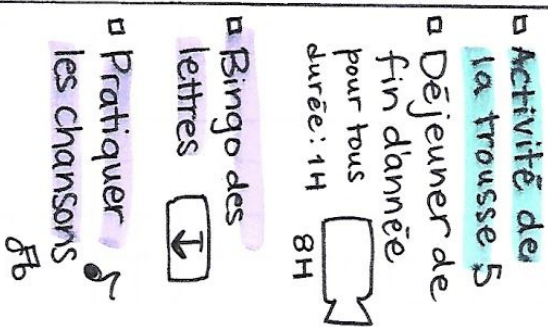 □ Activité de
la trousse 5
□ Déjeuner de
fin d'année
pour tous
durée: 1H
8H
□ Bingo des
lettres
I
□ Pratiquer
les chansons